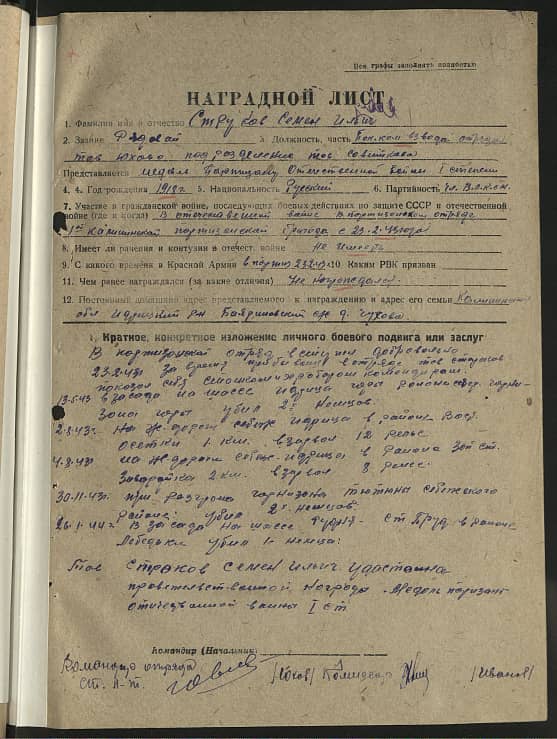 Все графы заполнять полностью
НАГРАДНОЙ ЛИСТ
1. Фамилия имя и отчество Струков Семен Ильич
2. Звание Рядовой 3. Должность, часть Пом.ком взвода отряда
тов Юхова, подразделения тов
Представляется медаль Партизану Отечественной войны I степени
4. 4. Год рождения 1918 г. 5. Национальность Русский 6. Партийность чл. В.л.к.с.м.
7. Участие в гражданской войне, последующих боевых действиях по защите СССР и отечественной
войне (где и когда) В отечественной войне в партизанском отряде
1ой Калининской партизанской бригада с 23.2.43 года
8. Имеет ли ранения и контузии в отечест. войне не имеет
9. С какого времени в Красной Армии в партиз 23.2.43 10. Каким РВК призван
11. Чем ранее награждался (за какие отличия) Не награждался
12. Постоянный домашний адрес представляемого к награждению и адрес его семьи Калининская
обл Идрицкий р-н с/с д. Чухова
1. Краткое, конкретное изложение личного боевого подвига или заслуг
В партизанский отряд вступил добровольно
23.2.43г За время пребывания в отряде тов Струков
показал себя смелым и храбрым командиром.
13.5.43 в засада на шоссе Идрица
убил 2х Немцов.
2.8.43г. На ж-дороги Себеж-Идрица в районе Вост.
1 км. взорвал 12 рельс
4.8.43г на ж дороги Себеж-Идрица в районе Зап ст.
2 км. взорвал 8 релес.
30.11.43г. при разгроме гарнизона Тютины Себежского
района: убил 2х немцов.
26.1.44г. В засада на шоссе Рудня - ст Пруд в районе
убил 1го немца:
Тов Струков Семен Ильич удостоина
правительственной Награды Медаль партизан
отечественной войны I ст
Командир (Начальник)
Командир отряда /Юхов/ Комиссар /Иванов/
Ст. Л-т.